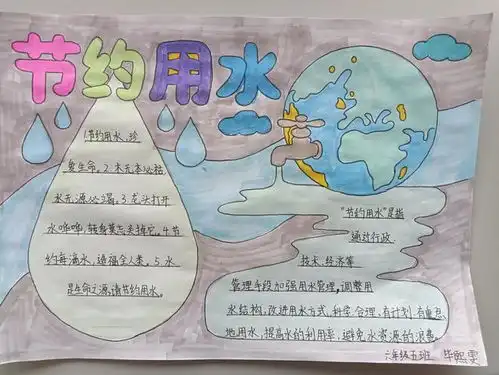 节约用水
1节约用水,珍
爱生命。2 木无本必枯
水无源必竭。3 龙头打开
水哗哗,转身莫忘关掉它。4 节
约每滴水,造福全人类。5 水
是生命之源,请节约用水。
"节约用水"是指
通过行政
技术、经济等
管理手段加强用水管理,调整用
水结构,改进用水方式,科学、合理、有计划、有重点
地用水,提高水的利用率,避免水资源的浪费。
六年级五班 毕熙雯